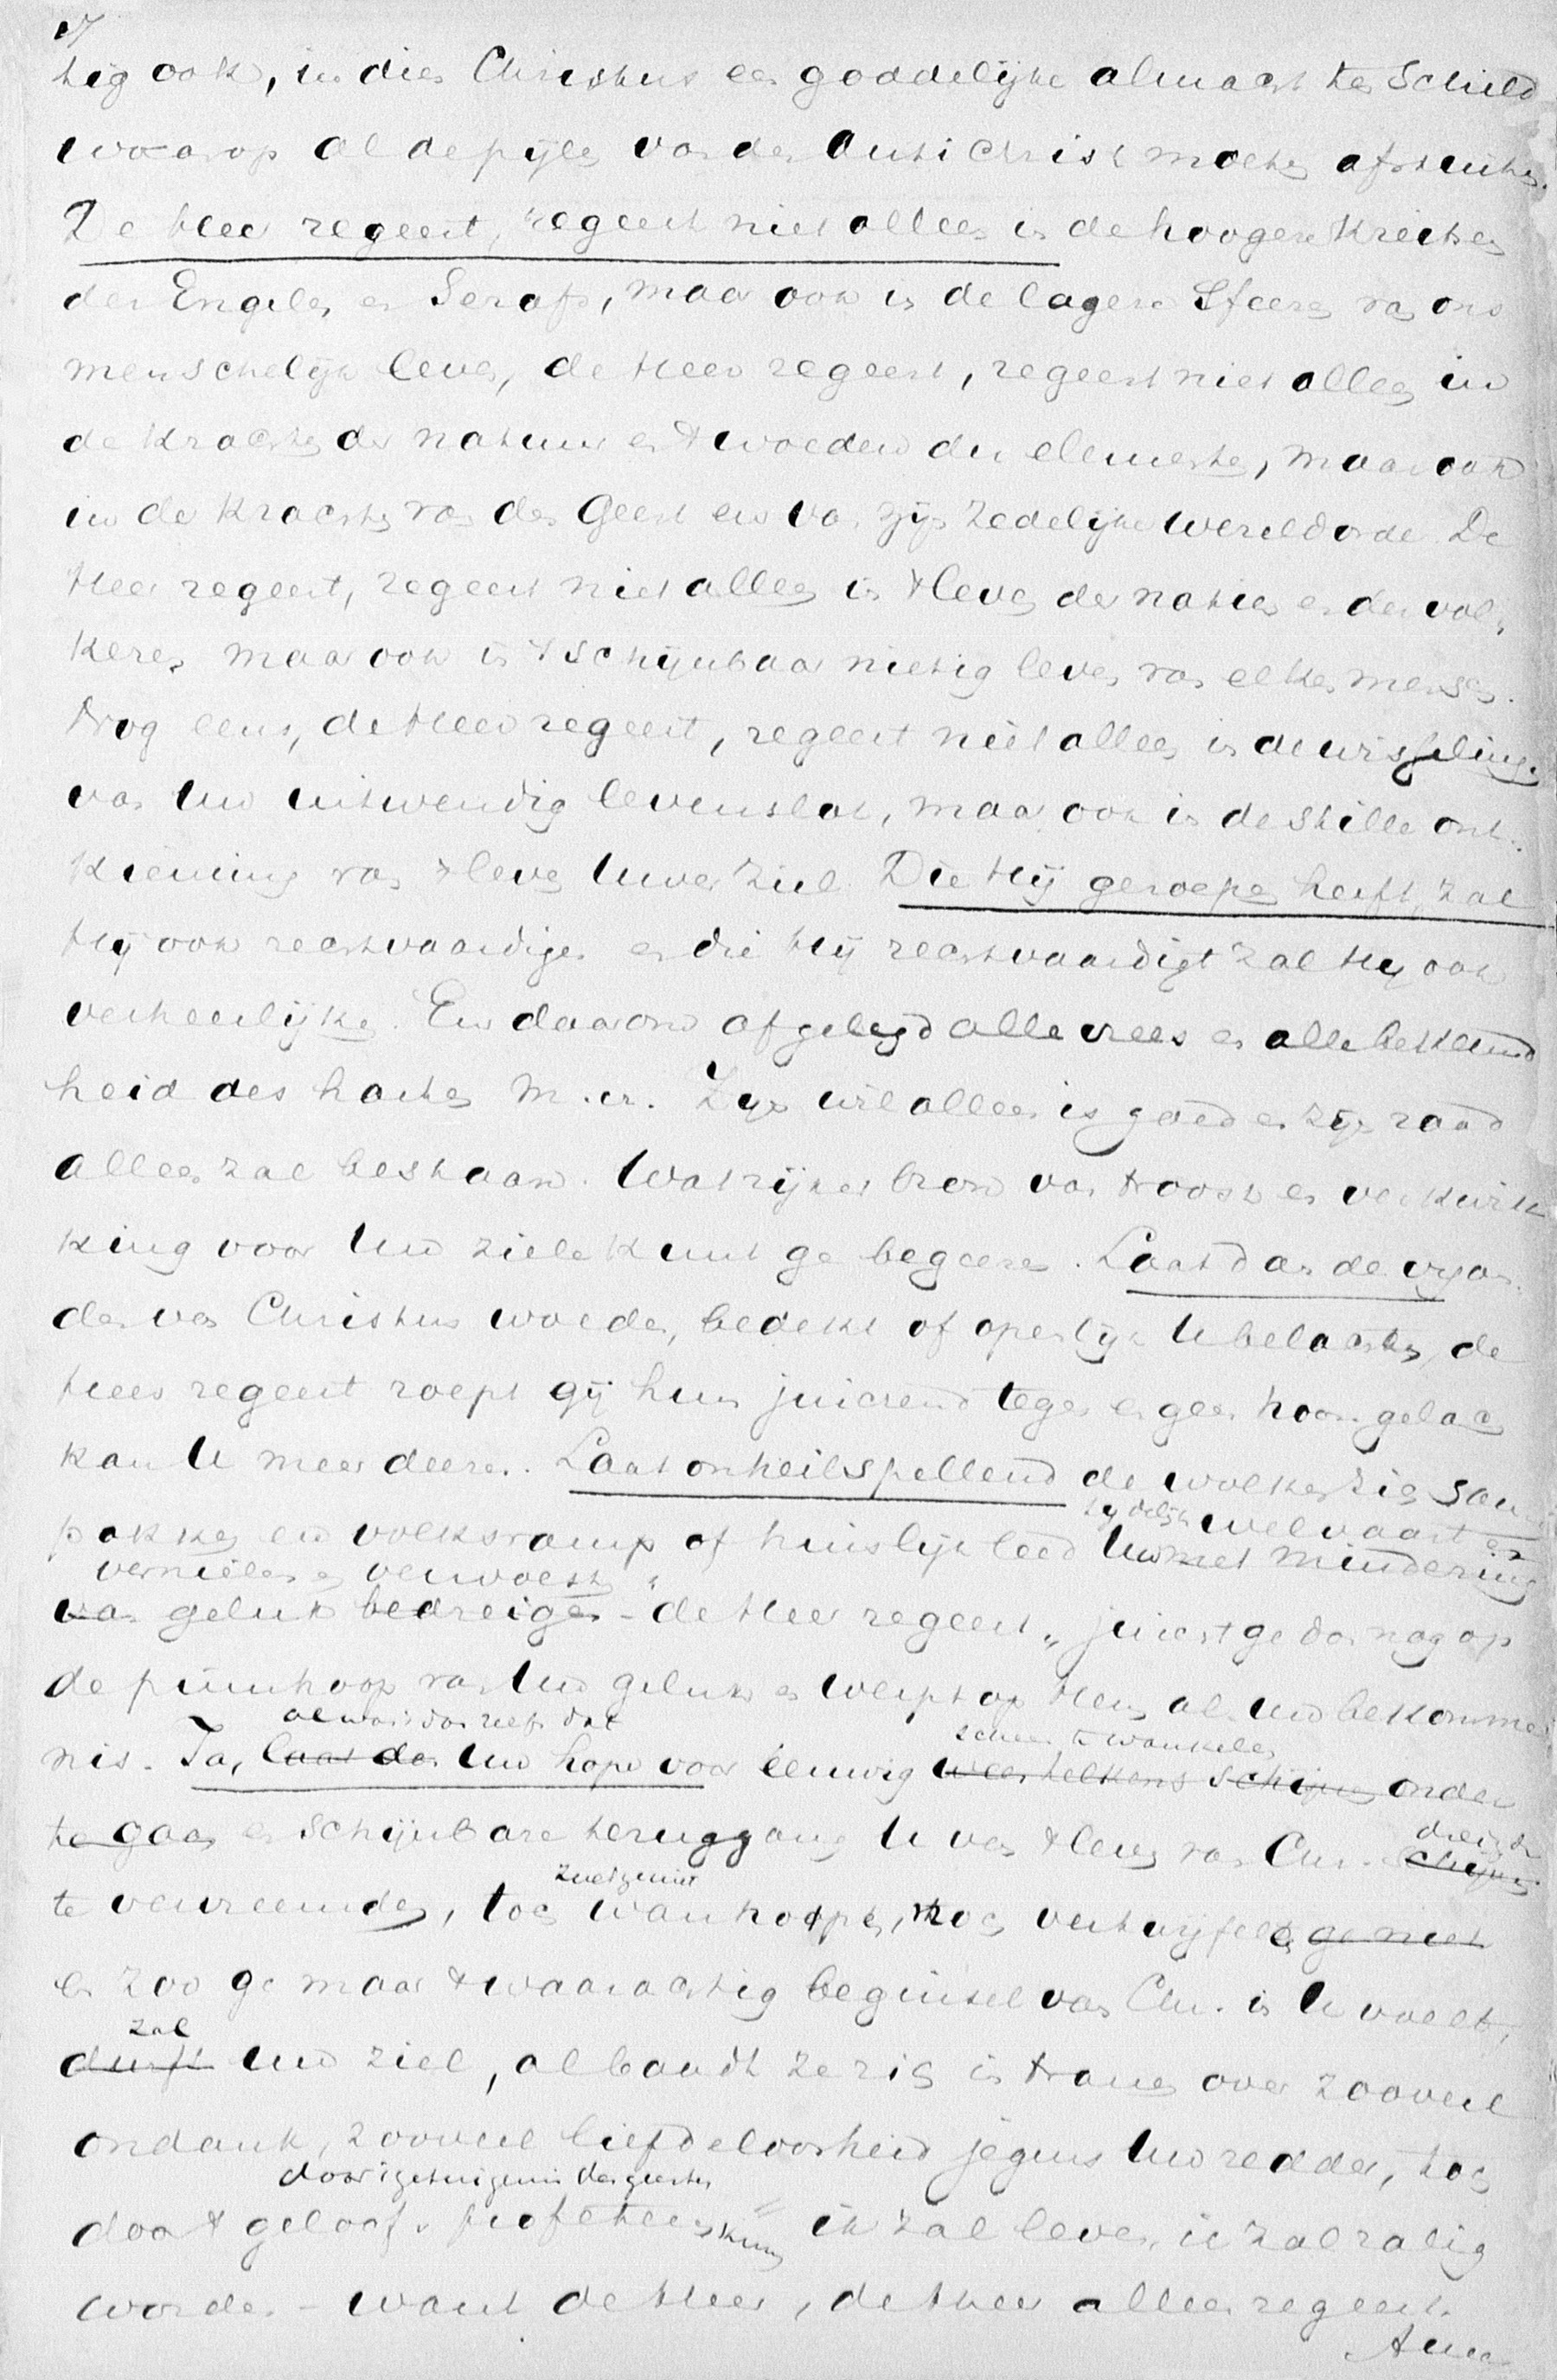 tig ook, in dien Christus een goddelijke almacht ten Schild
waarop al de pijlen van den Antichrist moeten afstuiten.
De Heer regeert, regeert niet alleen in de hoogere Kreitsen
der Engelen en Serafs, maar ook in de lagere Sfeeren van ons
menschelijk leven, de Heer regeert, regeert niet alleen in
de krachten der natuur en 't woeden der elementen, maar ook
in de krachten van den Geest en van zijn zedelijke wereldorde. De
Heer regeert, regeert niet alleen in 't leven der natien en der vol-
keren maar ook in 't schijnbaar nietig leven van elken mensch.
Nog eens, de Heer regeert, regeert niet alleen in de wisselingen
van Uw uitwendig levenslot, maar ook in de stille ont-
kieming van 't leven Uwer ziel. Die Hij geroepen heeft, zal
Hij ook rechtvaardigen en die Hij rechtvaardigt zal Hij ook
verheerlijken. En daarom afgelegd alle vrees en alle beklemd
heid des harten m. vr. Zijn wil alleen is goed en zijn raad
alleen zal bestaan. Wat rijker bron van troost en verkwik
king voor Uw ziele kunt ge begeeren. Laat dan de vijan-
den van Christus woeden, bedekt of openlijk U belachen, de
Heer regeert roept gij hun juichend tegen en geen hoongelach
kan U meer deeren. Laat onheilspellend de wolken zich saam
tijdelijk welvaart en
pakken en volksramp of huislijk leed Uw met mindering
vernielen en verwoesten
van geluk bedreigen - de Heer regeert „ juicht ge dan nog op
de puinhoop van Uw geluk en werpt op Hem al Uw bekommer
al waar 't dan zelfs dat scheen te wankelen
nis. Ja, laat dan Uw hope voor eeuwig weerhelkens schijnen onder
dreigde
te gaan en schijnbare teruggang U van 't leven van Chr. schijnen
zult ge niet
te vervreemden, toch wanhopen, noch vertwijfelen ge niet
en zoo ge maar 't waarachtig beginsel van Chr. in U voelt,
zal
durft Uw ziel, al baadt ze zich in tranen over zooveel
ondank, zooveel liefdeloosheid jegens Uw redder, toch
door 't getuigenis des geestes
door 't geloof profeteeren „ ik zal leven, ik zal zalig
worden - want de Heer, de Heer alleen regeert.
Amen